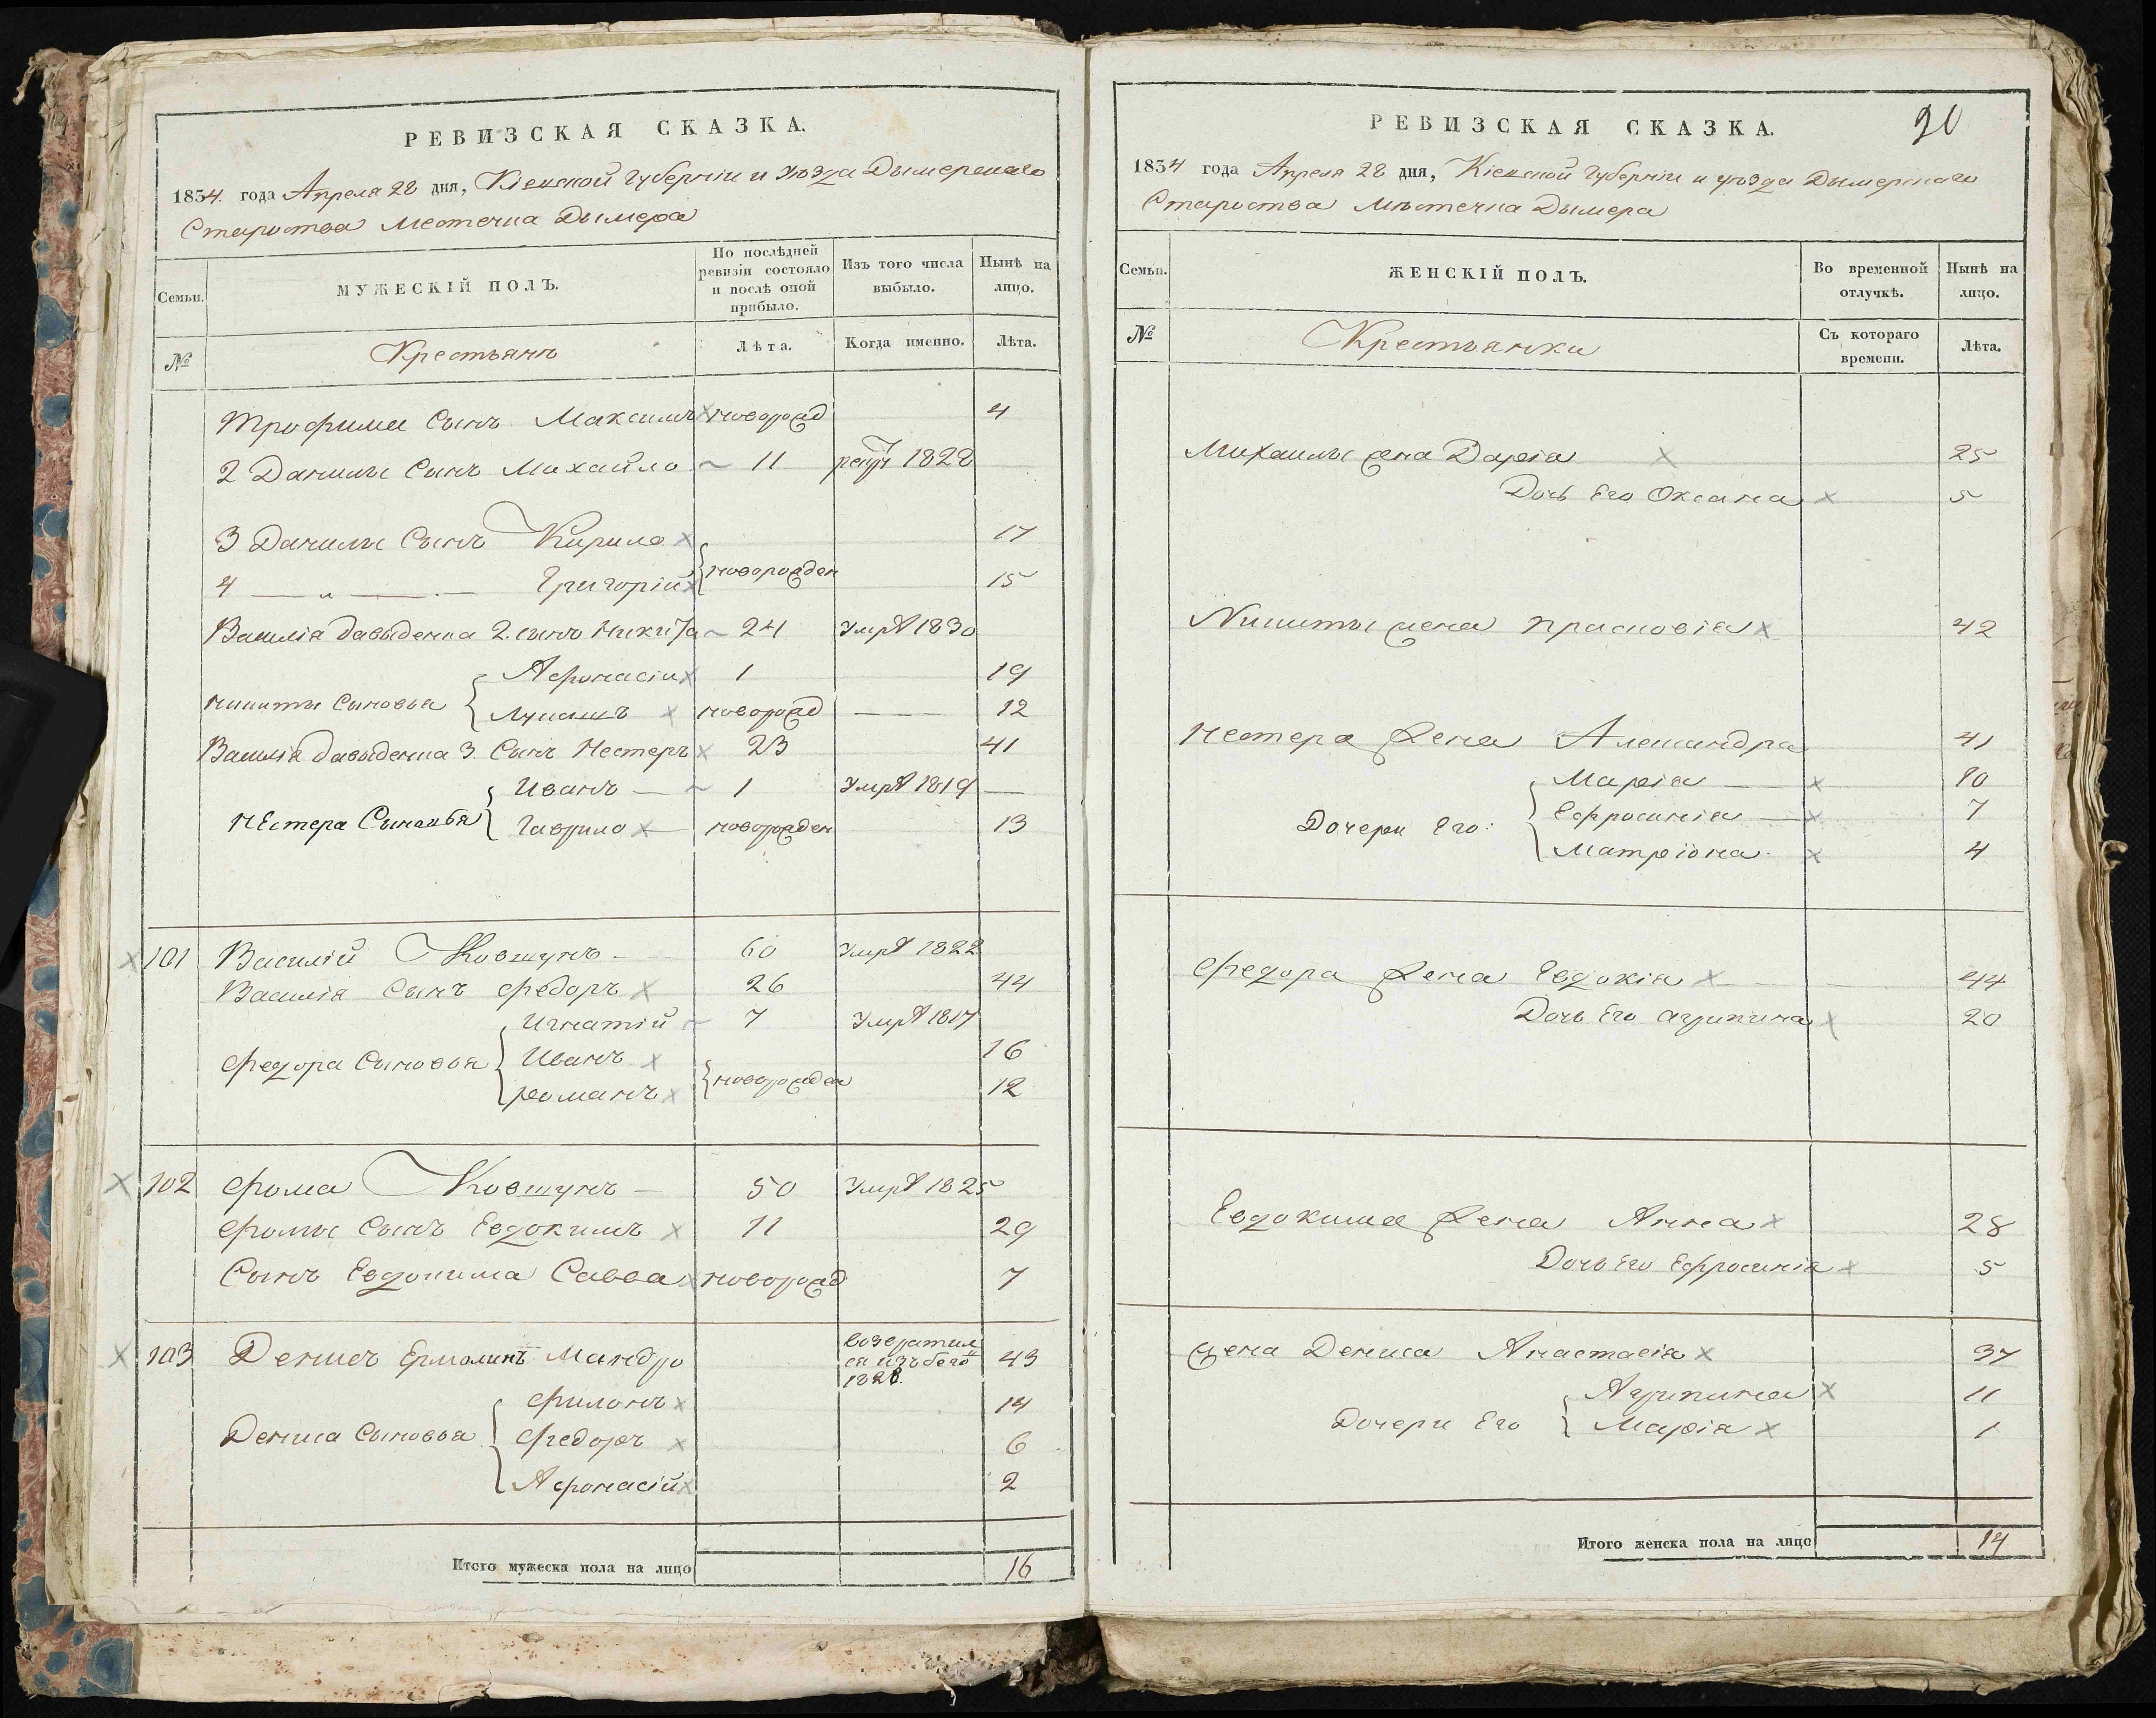 РЕВИЗСКАЯ СКАЗКА.
1834. года Апреля 28 дня, Кіевской Губерніи и Уѣзда Дымерскаго
Староства Местечка Дымера
Семьи.
МУЖЕСКІЙ ПОЛЪ.
По послѣдней ревизіи состояло и послѣ оной прибыло.
Изъ того числа выбыло.
Нынѣ на лицо.
№
Крестьянъ
Лѣта.
Когда именно.
Лѣта.
Трофима Сынъ Максимъ новорожд 4
2 Данилы Сынъ Михайло 11 рекрт 1828
3 Данилы Сынъ Кирило 17
новорожден
4 — „ — Григорій 15
Василія Давыденка 2. сынъ Никита 24 Умръ 1830
Афонасій 1 19
Никиты Сыновья
Лукашъ новорожд — 12
Василія Давыденка 3. Сынъ Нестеръ 23 41
Иванъ — 1 Умръ 1819 —
Нестера Сыновья
Гаврило новорожден 13
101 Василій Ковтунъ 60 Умръ 1822
Василія Сынъ Федоръ 26 44
Игнатій 7 Умръ 1817
Федора Сыновья Иванъ 16
новорожден
Романъ 12
102 Фома Ковтунъ — 50 Умръ 1825
Фомы Сынъ Евдокимъ 11 29
Сынъ Евдокима Савва новорожд 7
103 Денисъ Ермолинъ Мандро возвратил ся изъ бего 1828. 43
Филонъ 14
Дениса Сыновья Федоръ 6
Афонасій 2
Итого мужеска пола на лицо 16
РЕВИЗСКАЯ СКАЗКА.
20
1834 года Апреля 28 дня, Кіевской Губерніи и уѣзда Дымерскаго
Староства Мѣстечка Дымера
Семьи.
ЖЕНСКІЙ ПОЛЪ.
Во временной отлучкѣ.
Нынѣ на лицо.
№
Крестьянки
Съ котораго времени.
Лѣта.
Михаилы жена Дарія 25
Дочь Его Оксана 5
Никиты жена Прасковія 42
Нестера Жена Александра 41
Марія — 10
Дочери Его: Ефросинія — 7
Матріона 4
Федора Жена Евдокія 44
Дочь Его Агрипина 20
Евдокима Жена Анна 28
Дочь Его Ефросинія 5
жена Дениса Анастасія 37
Агрипина 11
Дочери Его Марія 1
Итого женска пола на лицо 14